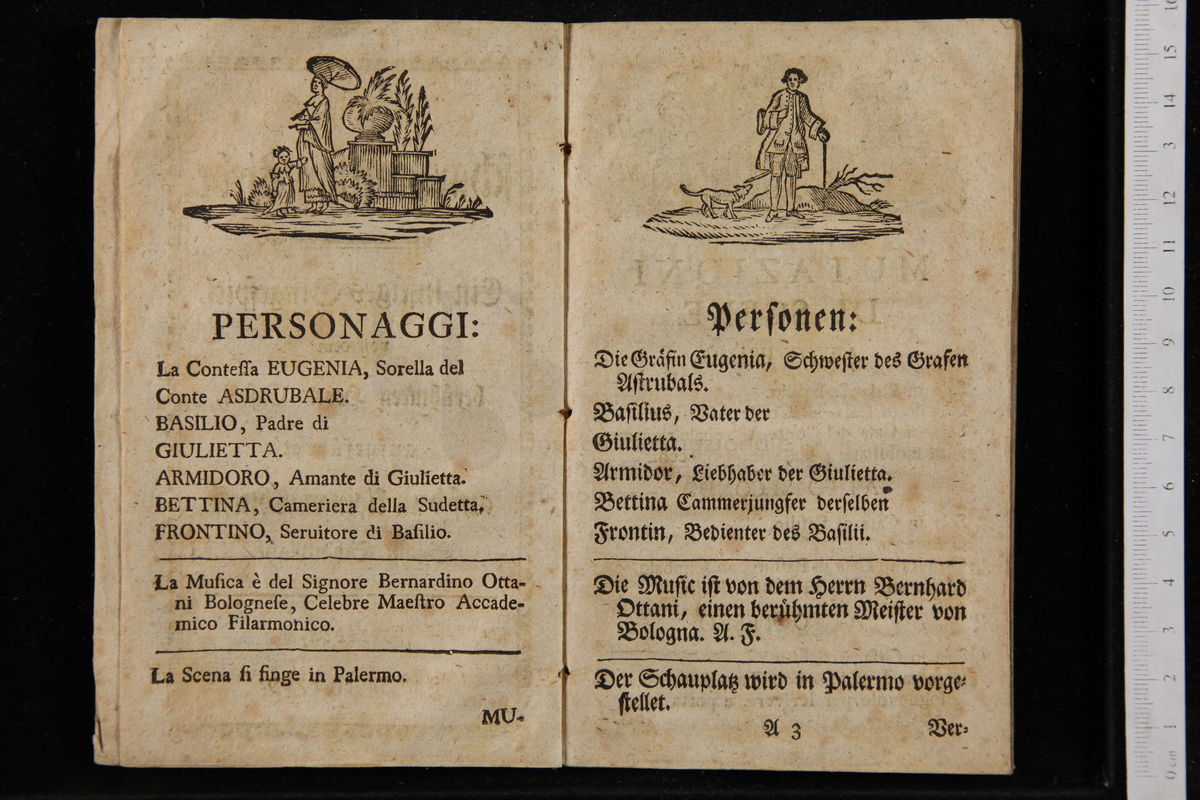 PERSONAGGI:
La Conteſſa EUGENIA, Sorella del
Conte ASDRUBALE.
BASILIO, Padre di
GIULIETTA.
ARMIDORO, Amante di Giulietta.
BETTINA, Cameriera della Sudetta,
FRONTINO, Seruitore di Baſilio.
La Muſica è del Signore Bernardino Otta-
ni Bologneſe, Celebre Maeſtro Accade-
mico Filarmonico.
La Scena ſi finge in Palermo.
MU-
Perſonen:
Die Gräfin Eugenia, Schweſter des Grafen
Aſtrubals.
Baſilius, Vater der
Giulietta.
Armidor, Liebhaber der Giulietta.
Bettina Cammerjungfer derſelben
Frontin, Bedienter des Baſilii.
Die Muſic iſt von dem Herrn Bernhard
Ottani, einen berühmten Meiſter von
Bologna. A. F.
Der Schauplatz wird in Palermo vorge-
ſtellet.
A 3
Ver-
0 cm 1 2 3 4 5 6 7 8 9 10 11 12 3 14 15 16